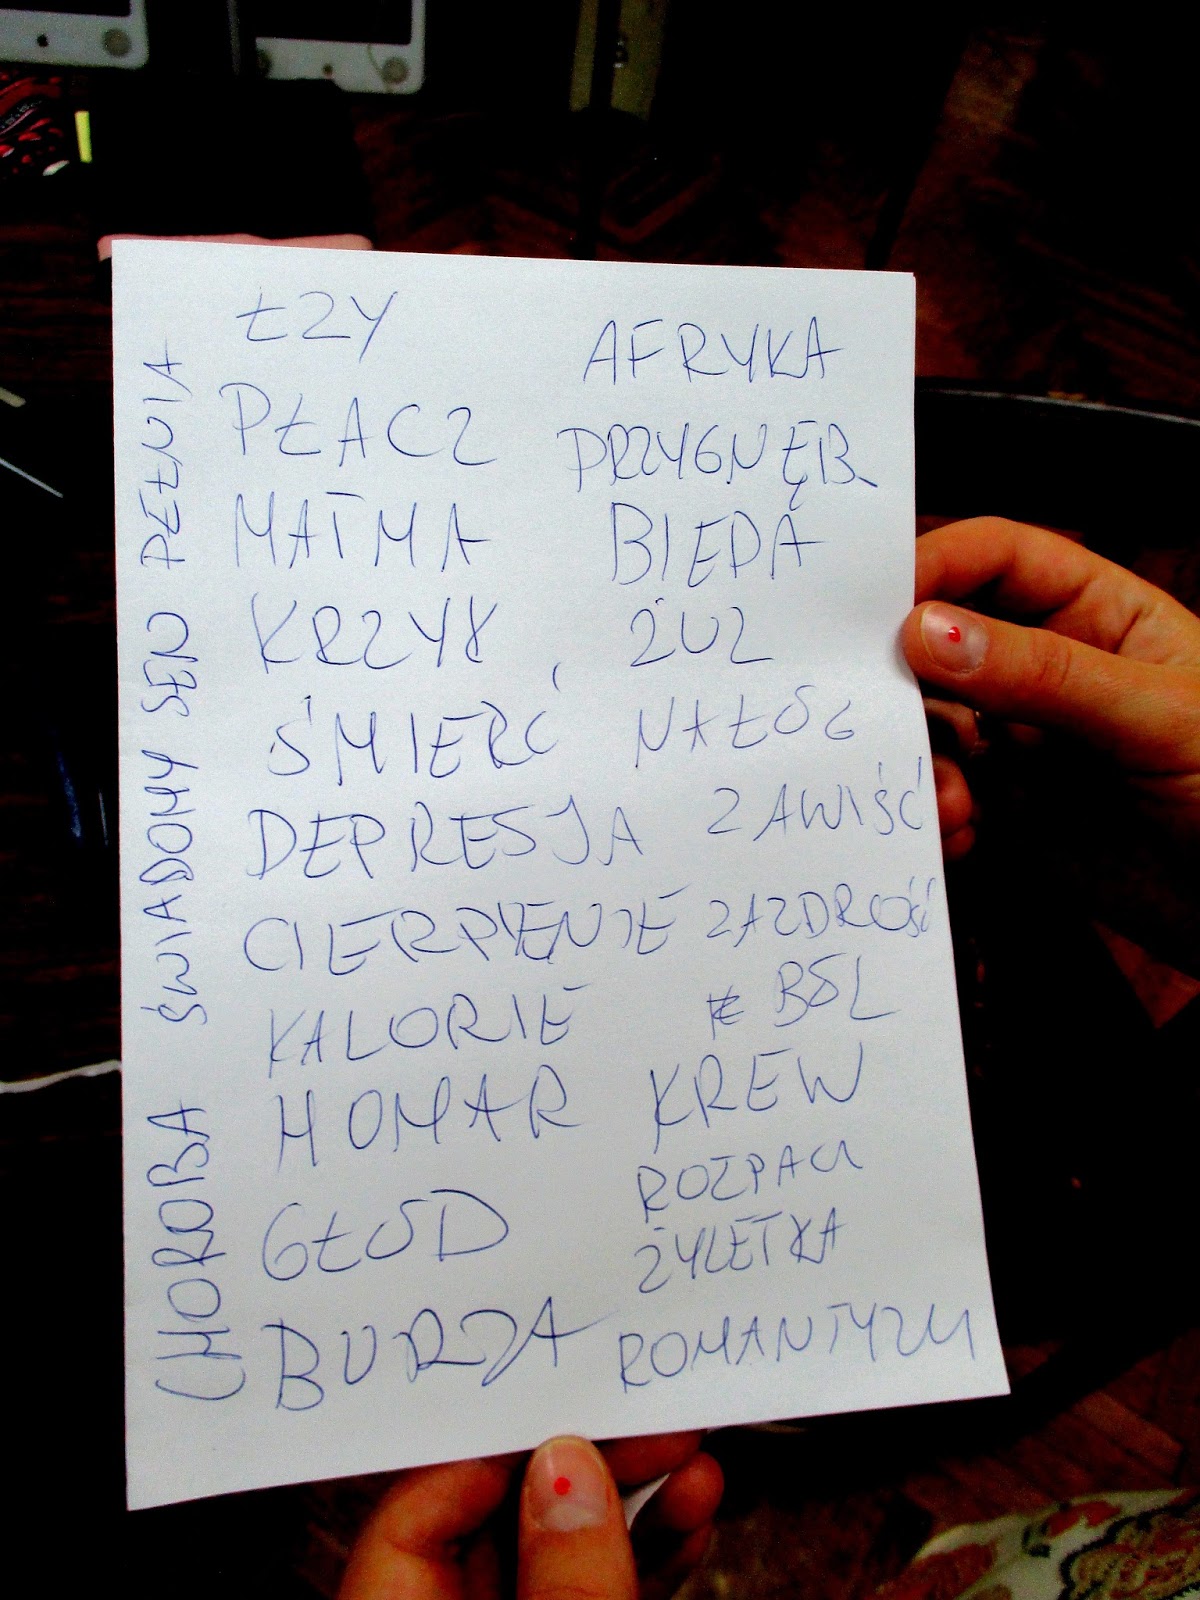 ŁZY
PŁACZ
MATMA
KRZYK
ŚMIERĆ
DEPRESJA
CIERPIENIE
KALORIE
HOMAR
GŁÓD
BURZA
AFRYKA
PRZYGNĘB.
BIEDA
ŻUL
NAŁÓG
ZAWIŚĆ
ZAZDROŚĆ
BÓL
KREW
ROZPACZ
ŻYLETKA
ROMANTYZM
CHOROBA ŚWIADOMY SEN PEŁNIA